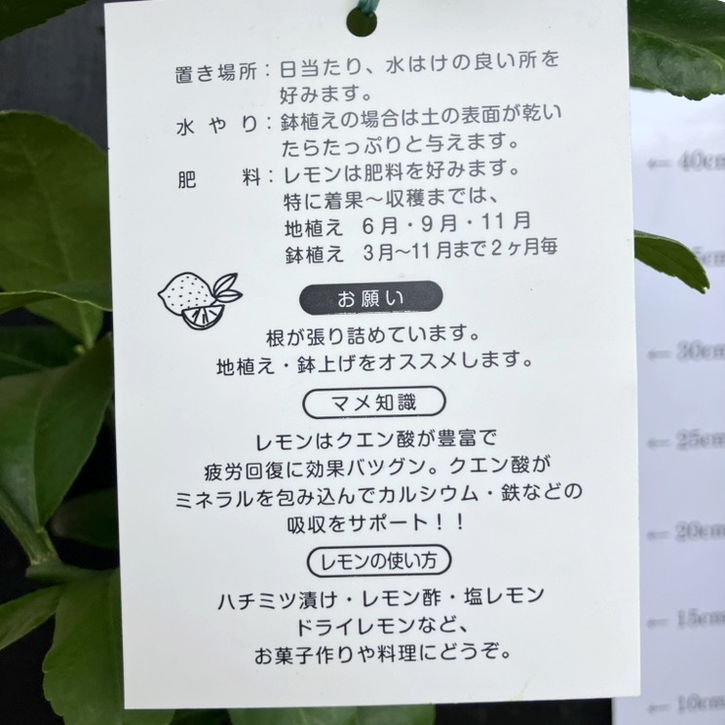 置き場所：日当たり、水はけの良い所を
好みます。
水やり：鉢植えの場合は土の表面が乾い
たらたっぷりと与えます。
肥料：レモンは肥料を好みます。
特に着果〜収穫までは、
地植え 6月・9月・11月
鉢植え 3月〜11月まで2ヶ月毎
お願い
根が張り詰めています。
地植え・鉢上げをオススメします。
マメ知識
レモンはクエン酸が豊富で
疲労回復に効果バツグン。クエン酸が
ミネラルを包み込んでカルシウム・鉄などの
吸収をサポート！！
レモンの使い方
ハチミツ漬け・レモン酢・塩レモン
ドライレモンなど、
お菓子作りや料理にどうぞ。
←40cm
←30cm
←25cm
←20cm
←15cm
←10cm